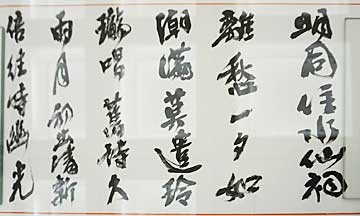 明同住水仙祠
離愁一夕如
潮滿莫遣玲
瓏唱舊詩久
雨月初出清新
倍往時幽光